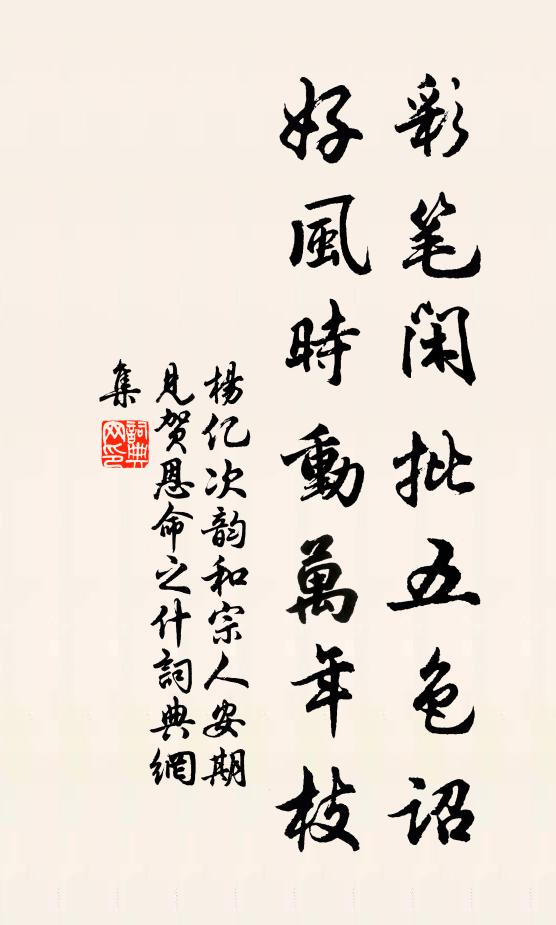 彩笔閑批五色詔
好風時動萬年枝
楊亿次韵和宗人安期
見贺恩命之什詞典網
集
詞典
网印